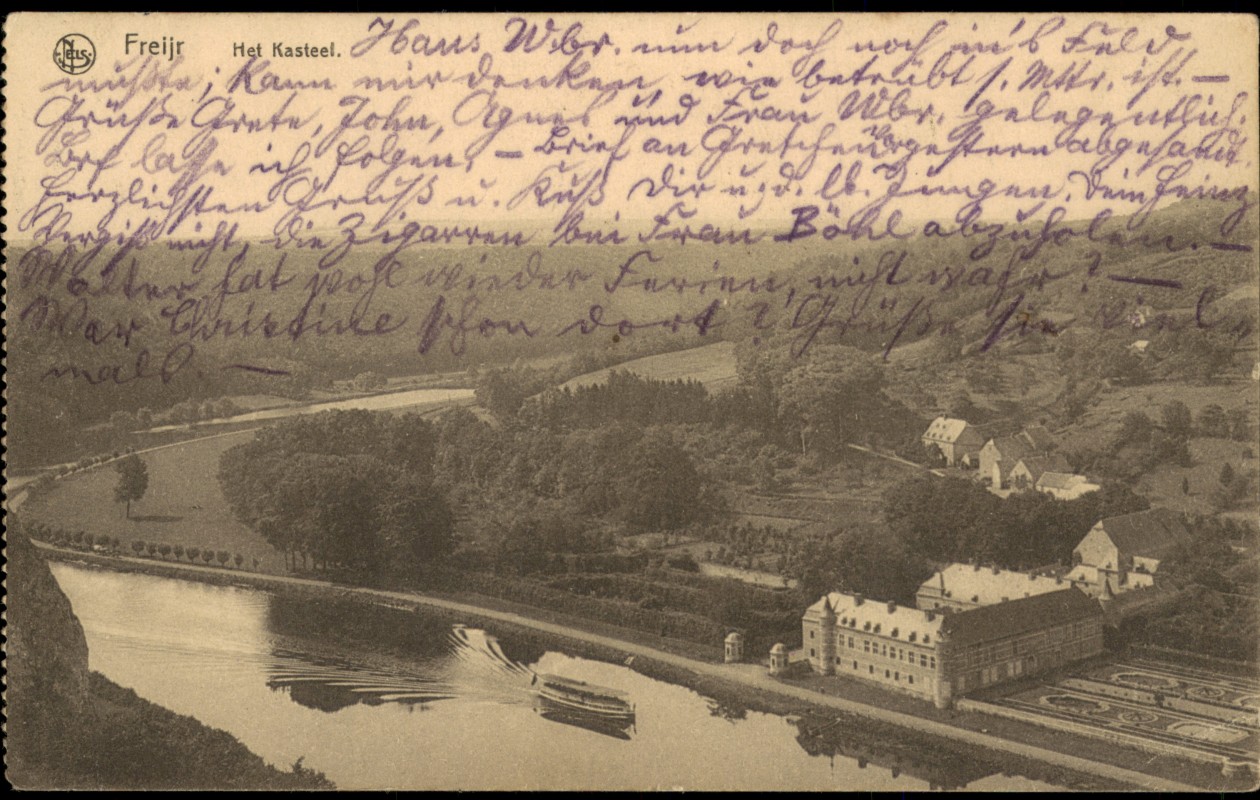 NELS Freijr Het Kasteel. Hans Wbr. nun doch noch in's Feld
mußte; kann mir denken, wie betrübt s. Mttr. ist. —
Grüße Grete, John, Agnes und Frau Wbr. gelegentlich.
Brf lasse ich folgen. — Brief an Gretchen gestern abgesandt
Herzlichsten Gruß u. Kuß Dir u. d. lb. Jungen. Dein Heinz
Vergiß nicht, die Zigarren bei Frau Böhl abzuholen. —
Walter hat wohl wieder Ferien, nicht wahr? —
War Christine schon dort? Grüße sie viel-
mals. —